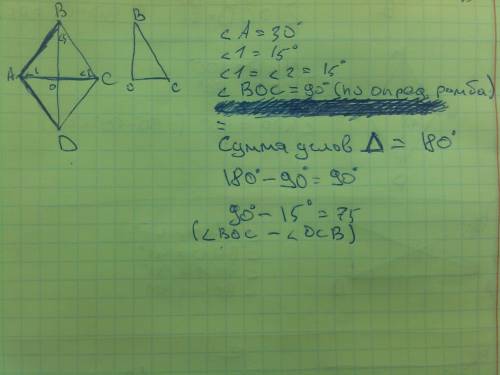 B
B
A
1
O
2
C
O
C
D
∠A = 30°
∠1 = 15°
∠1 = ∠2 = 15°
∠BOC = 90° (по опред. ромба)
=
Сумма углов Δ = 180°
180° - 90° = 90°
90° - 15° = 75
(∠BOC - ∠OCB)